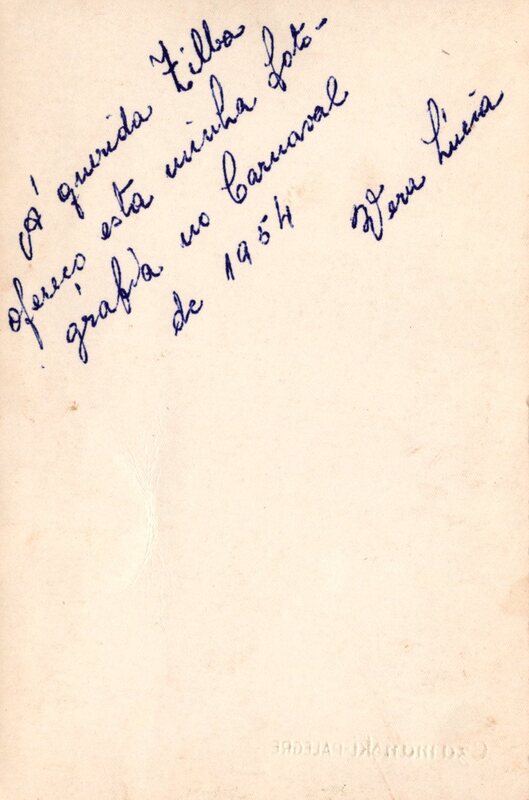 Á querida Zilba
ofereço esta minha foto-
gráfia no Carnaval
de 1954
Vera Lúcia
Czamanski-P.ALEGRE